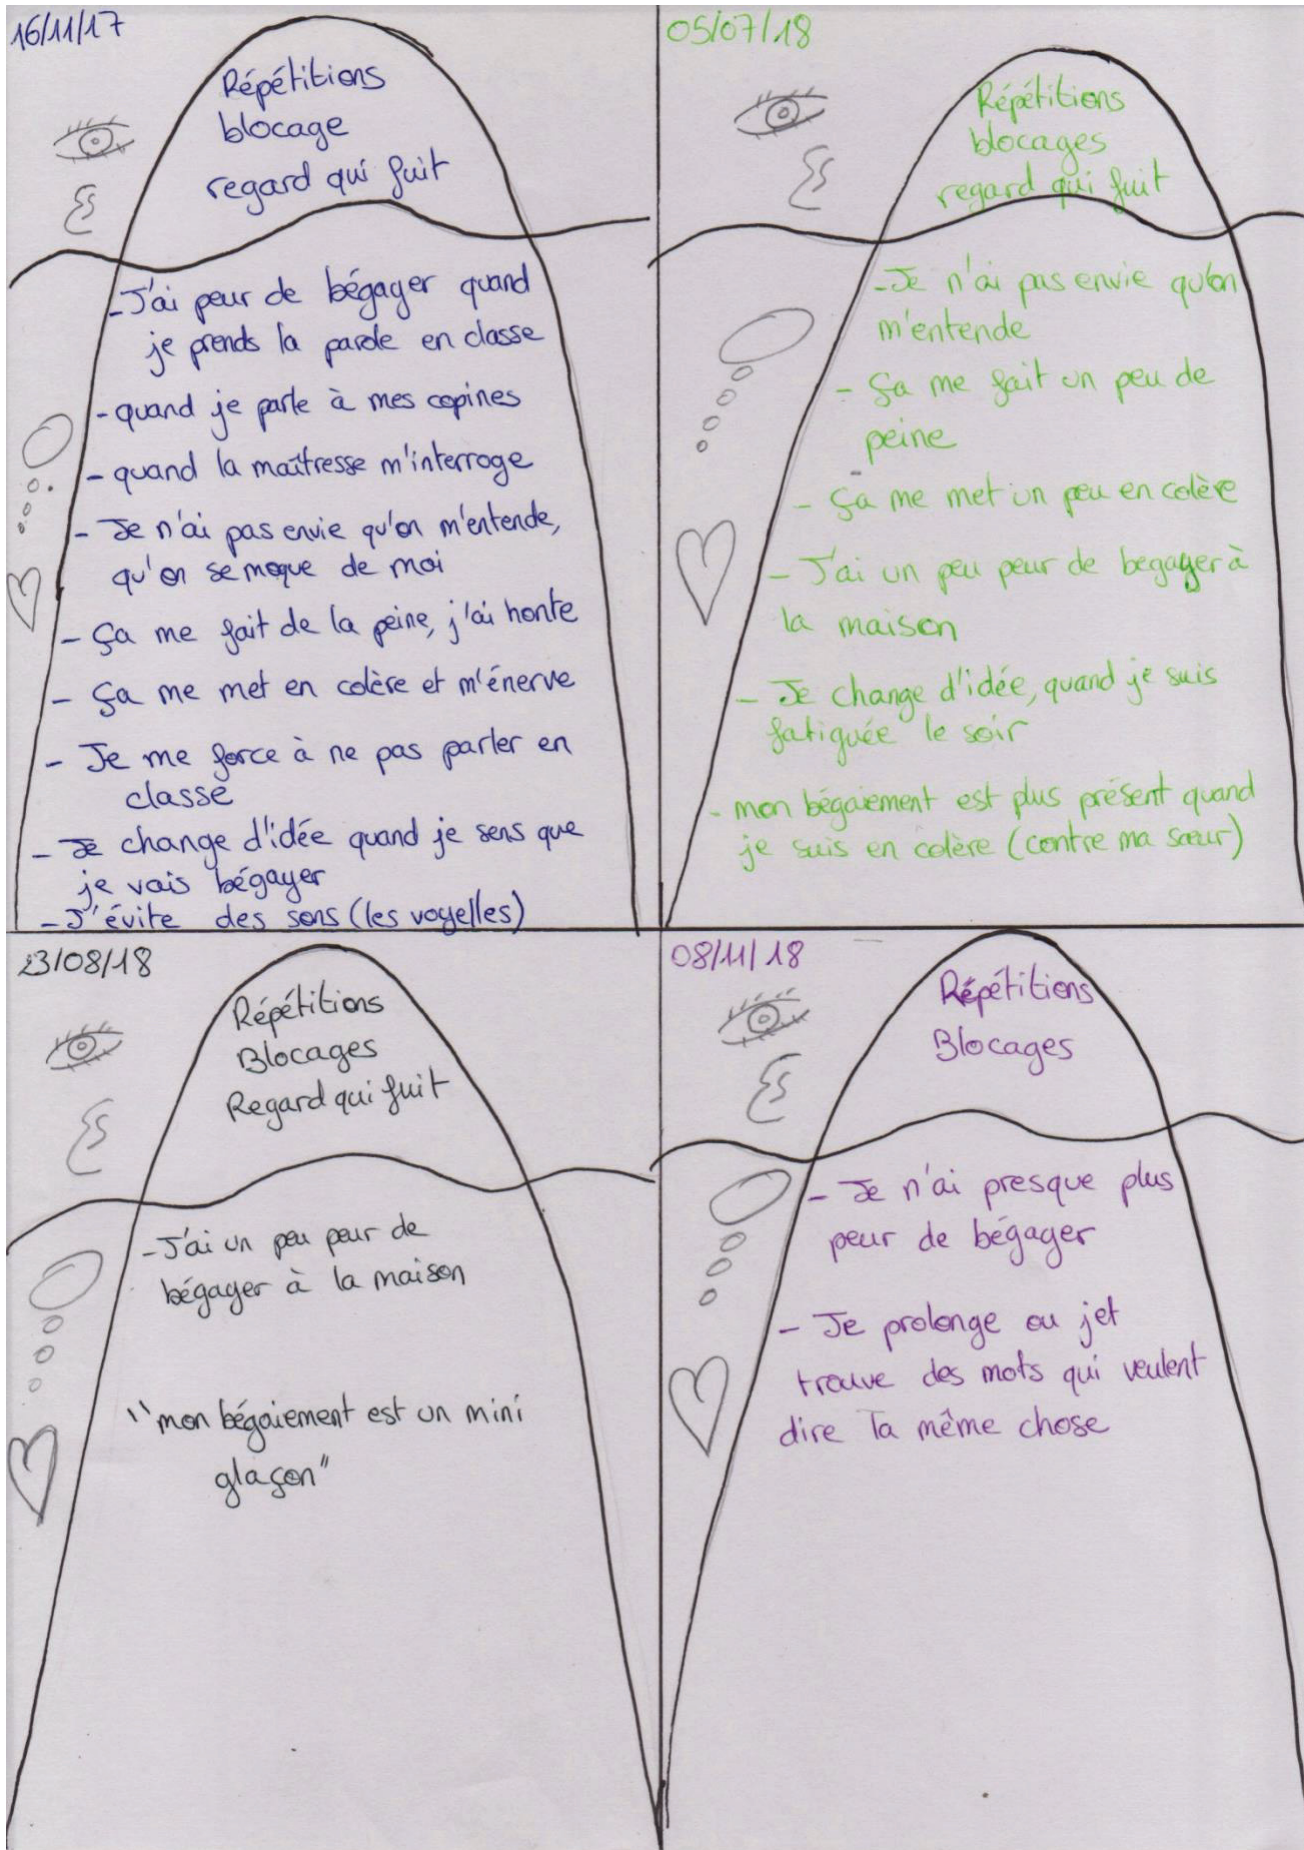 16/11/17
Répétitions
blocage
regard qui fuit
- J'ai peur de bégayer quand
je prends la parole en classe
- quand je parle à mes copines
- quand la maîtresse m'interroge
- Je n'ai pas envie qu'on m'entende,
qu'on se moque de moi
- ça me fait de la peine, j'ai honte
- ça me met en colère et m'énerve
- Je me force à ne pas parler en
classe
- Je change d'idée quand je sens que
je vais bégayer
- J'évite des sons (les voyelles)
05/07/18
Répétitions
blocages
regard qui fuit
- Je n'ai pas envie qu'on
m'entende
- ça me fait un peu de
peine
- ça me met un peu en colère
- J'ai un peu peur de begayer à
la maison
- Je change d'idée, quand je suis
fatiguée le soir
- mon bégaiement est plus présent quand
je suis en colère (contre ma sœur)
23/08/18
Répétitions
Blocages
Regard qui fuit
- J'ai un peu peur de
bégayer à la maison
"mon bégaiement est un mini
glaçon"
08/11/18
Répétitions
Blocages
- Je n'ai presque plus
peur de bégayer
- Je prolonge ou jet
trouve des mots qui veulent
dire la même chose